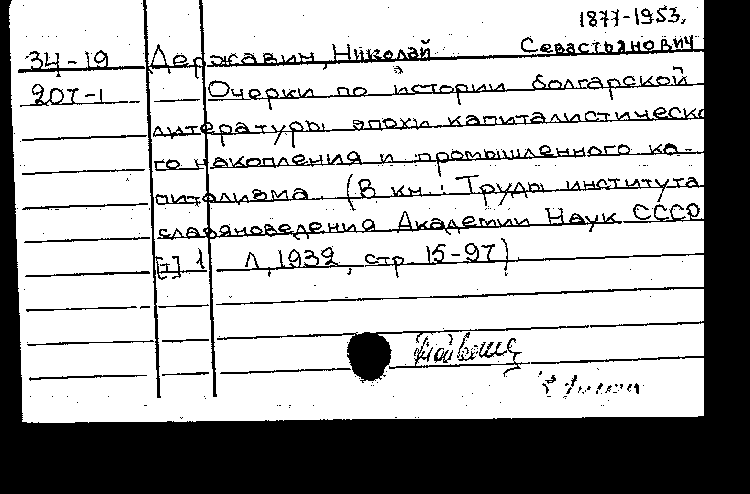 1877-1953.
34-19 Державин, Николай Севастьянович
207-1 Очерки по истории болгарской
литературы эпохи капиталистическо
го накопления и промышленного ка-
питализма. (В кн.: Труды института
славяноведения Академии Наук СССР
[т] 1 Л, 1932, стр. 15-97)